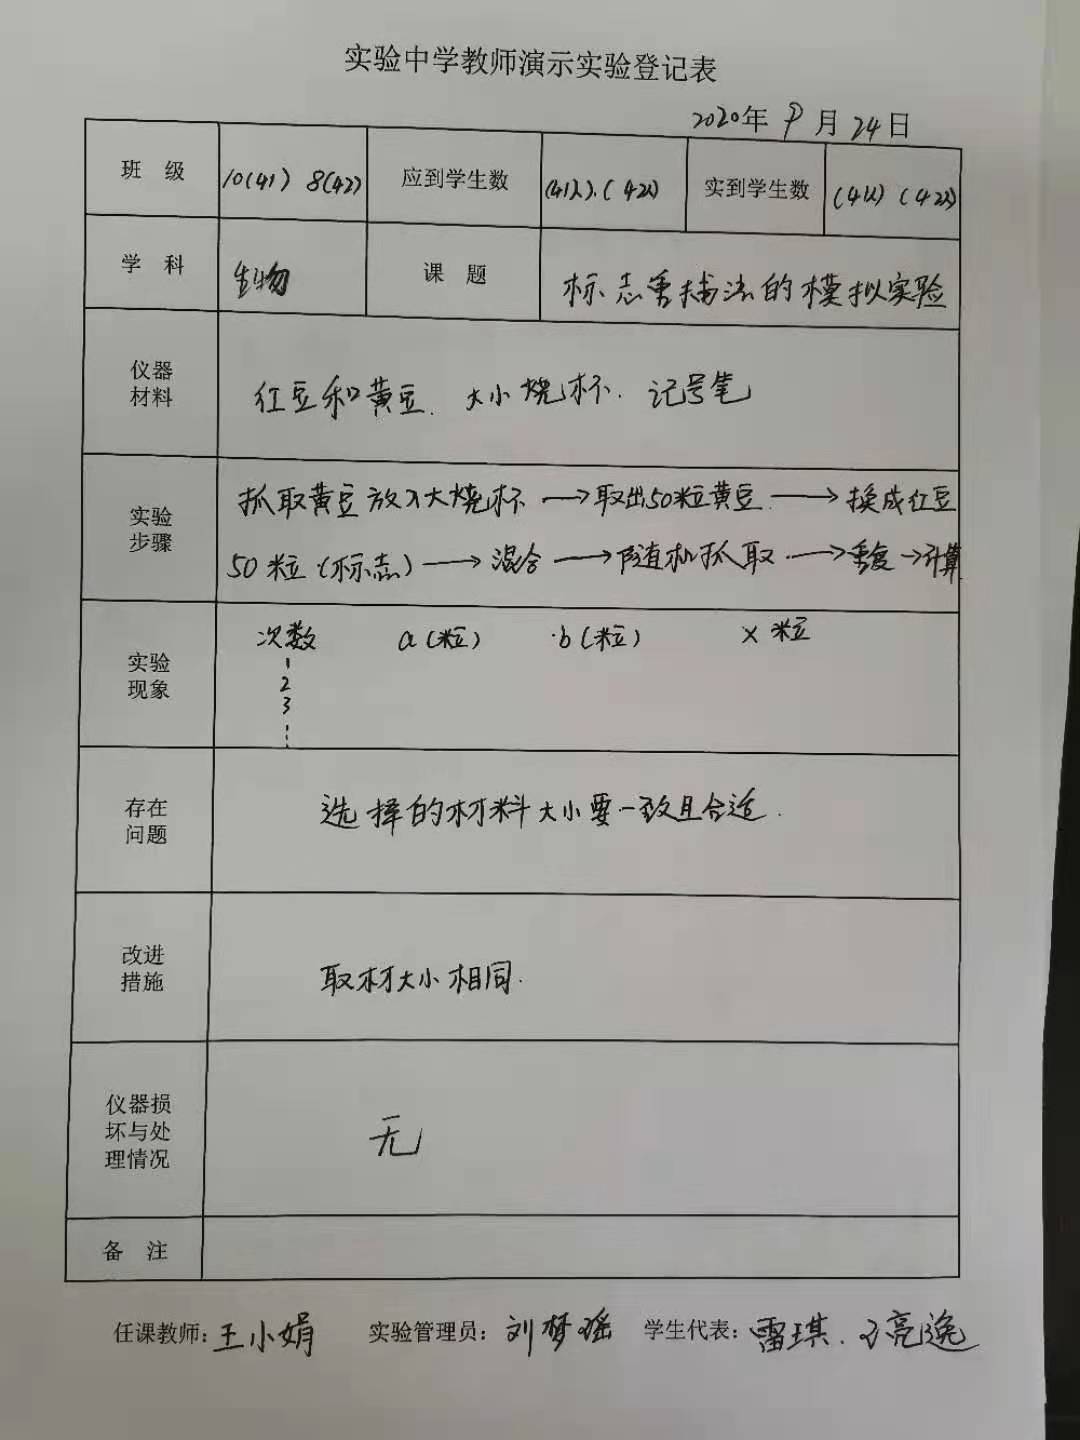 实验中学教师演示实验登记表
2020年 9 月 24 日
班 级 10(41) 8(42) 应到学生数 (41人).(42人) 实到学生数 (41人) (42人)
学 科 生物 课 题 标志重捕法的模拟实验
仪器
材料
红豆和黄豆. 大小烧杯. 记号笔
实验
步骤
抓取黄豆放入大烧杯 → 取出50粒黄豆. → 换成红豆
50粒(标志) → 混合 → 随机抓取 → 重复 → 计算
实验
现象
次数 a(粒) b(粒) x 粒
1
2
3
存在
问题
选择的材料大小要一致且合适.
改进
措施
取材大小相同.
仪器损
坏与处
理情况
无
备 注
任课教师:王小娟 实验管理员:刘梦瑶 学生代表:雷琪.